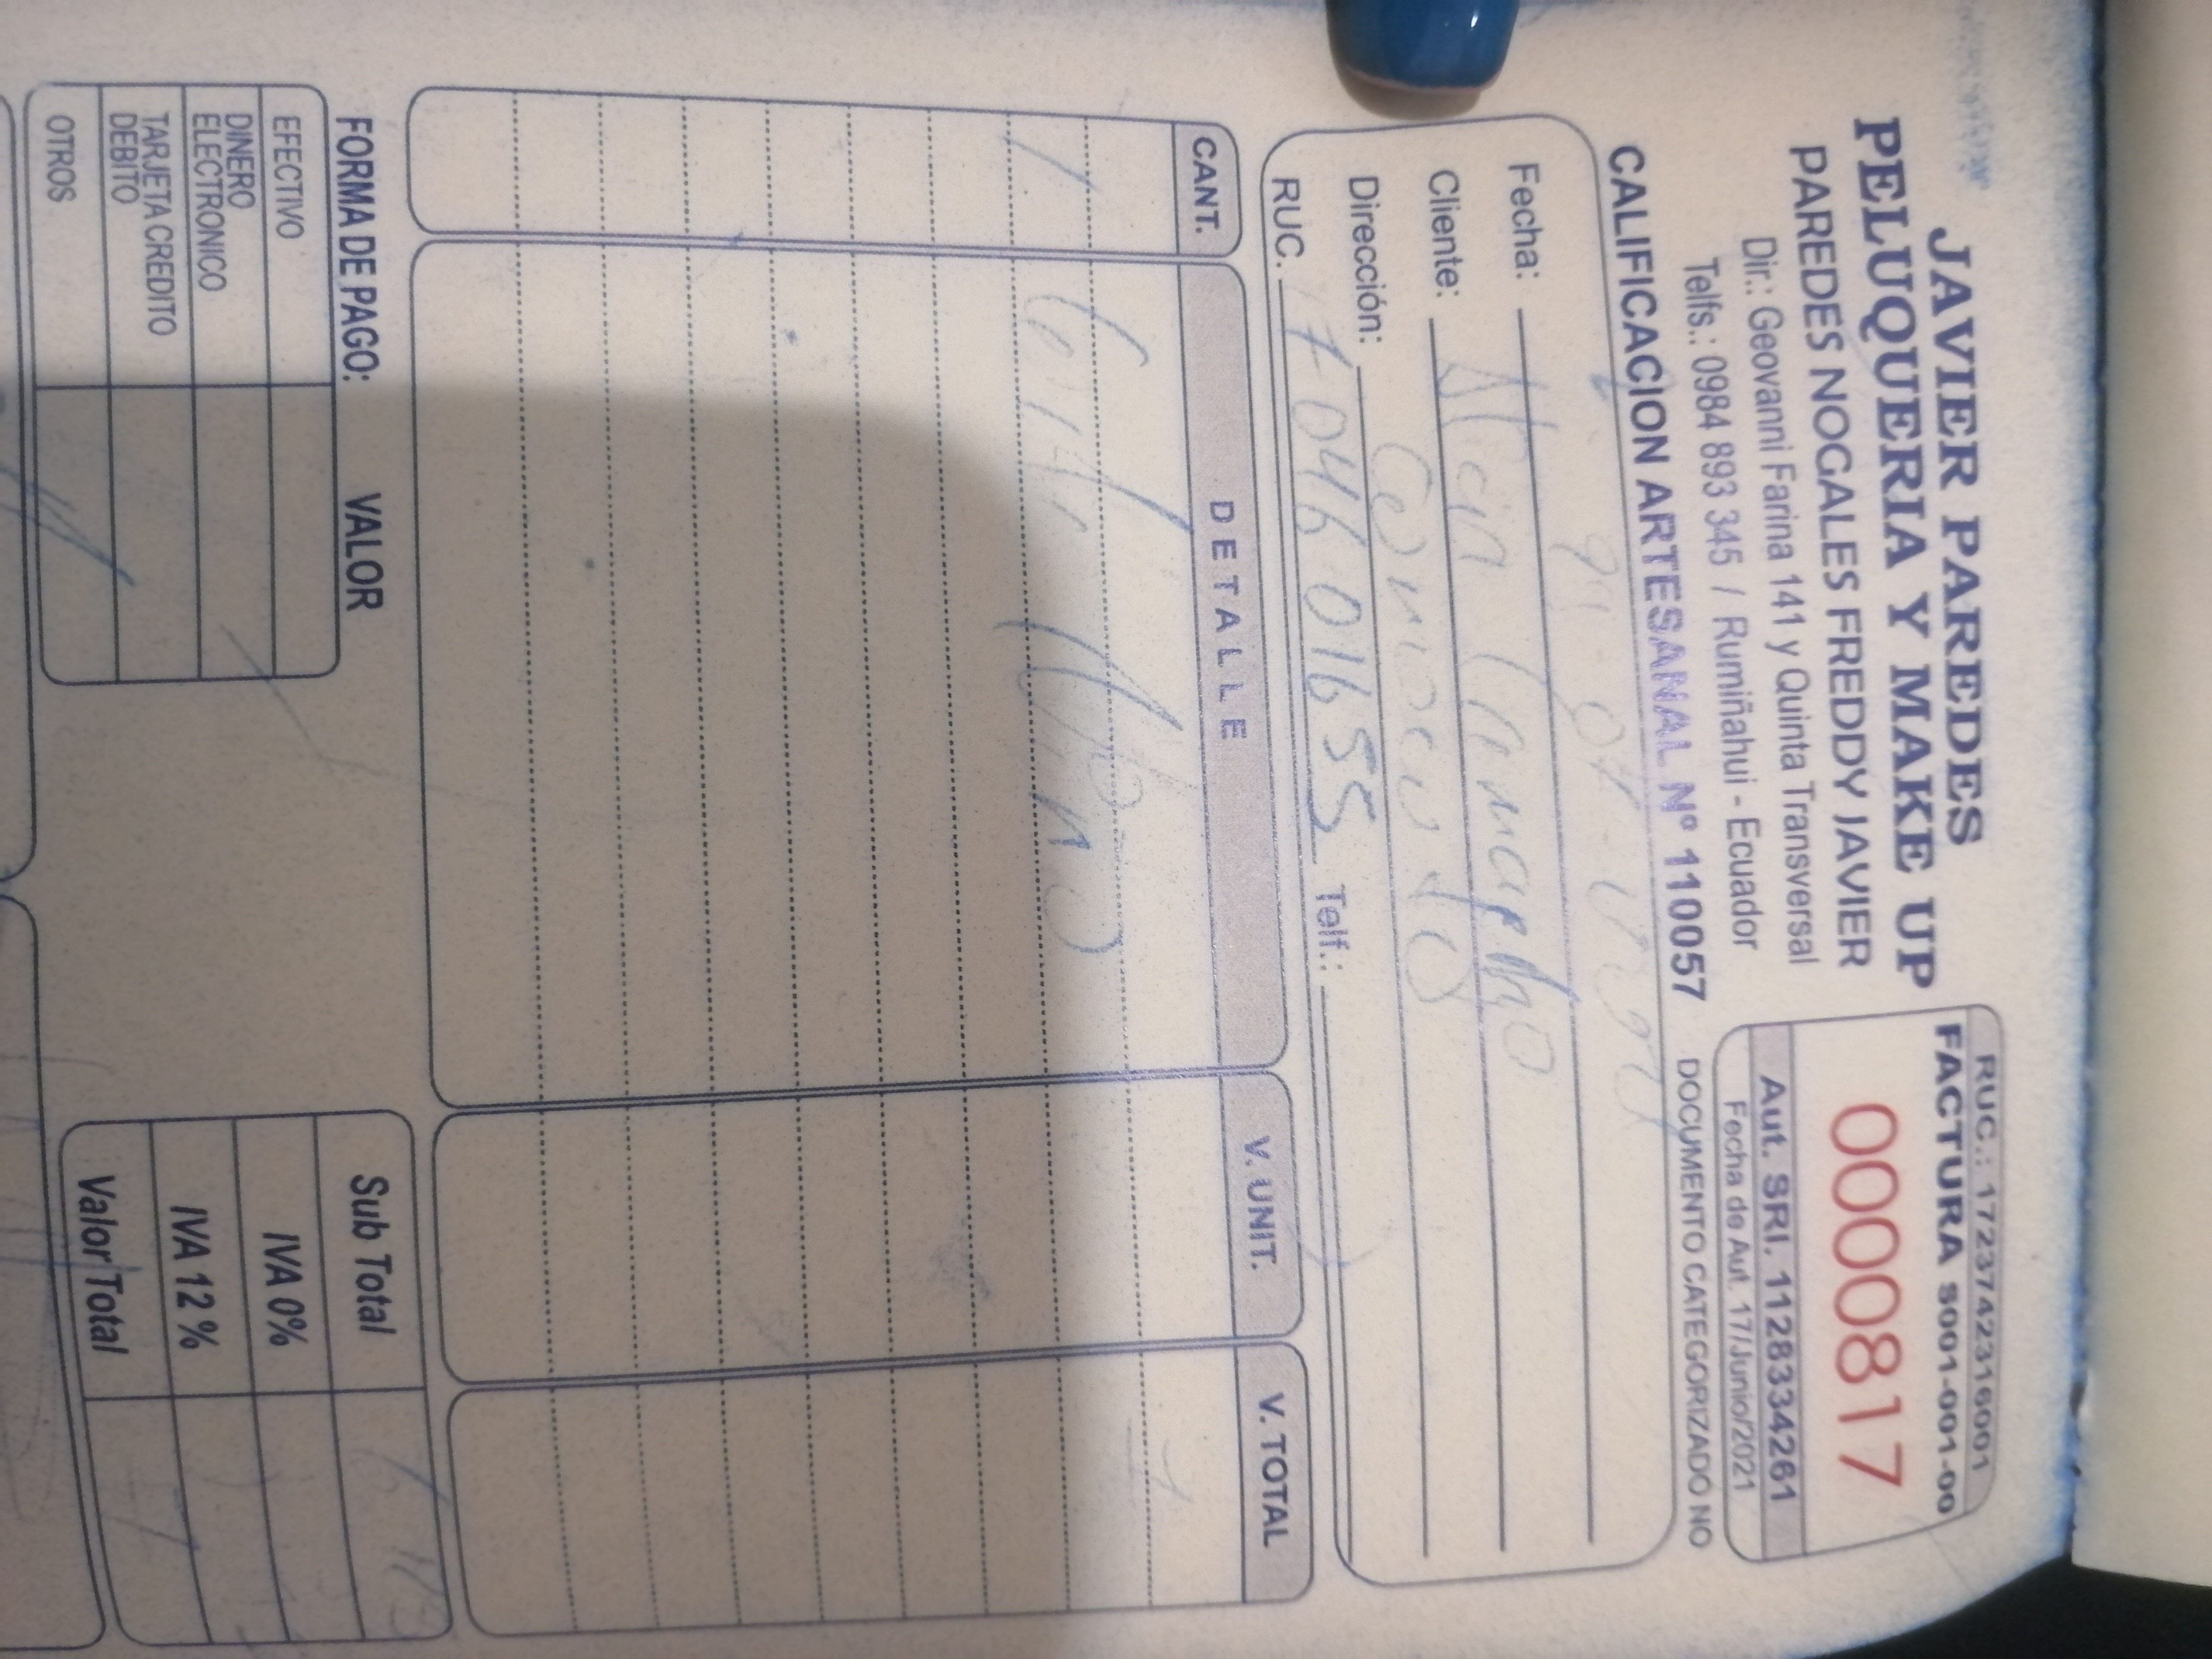 JAVIER PAREDES
PELUQUERIA Y MAKE UP
PAREDES NOGALES FREDDY JAVIER
Dir.: Geovanni Farina 141 y Quinta Transversal
Telfs.: 0984 893 345 / Rumiñahui - Ecuador
CALIFICACION ARTESANAL Nº 110057
RUC.: 1723742316001
FACTURA S001-001-00
0000817
Aut. SRI. 1128334261
Fecha de Aut. 17/Junio/2021
DOCUMENTO CATEGORIZADO NO
Fecha:
Cliente: Alicia Camacho
Dirección: Conocoto
RUC. Telf.:
CANT. DETALLE V. UNIT. V. TOTAL
1 Corte
FORMA DE PAGO: VALOR
EFECTIVO
DINERO ELECTRONICO
TARJETA CREDITO DEBITO
OTROS
Sub Total
IVA 0%
IVA 12 %
Valor Total